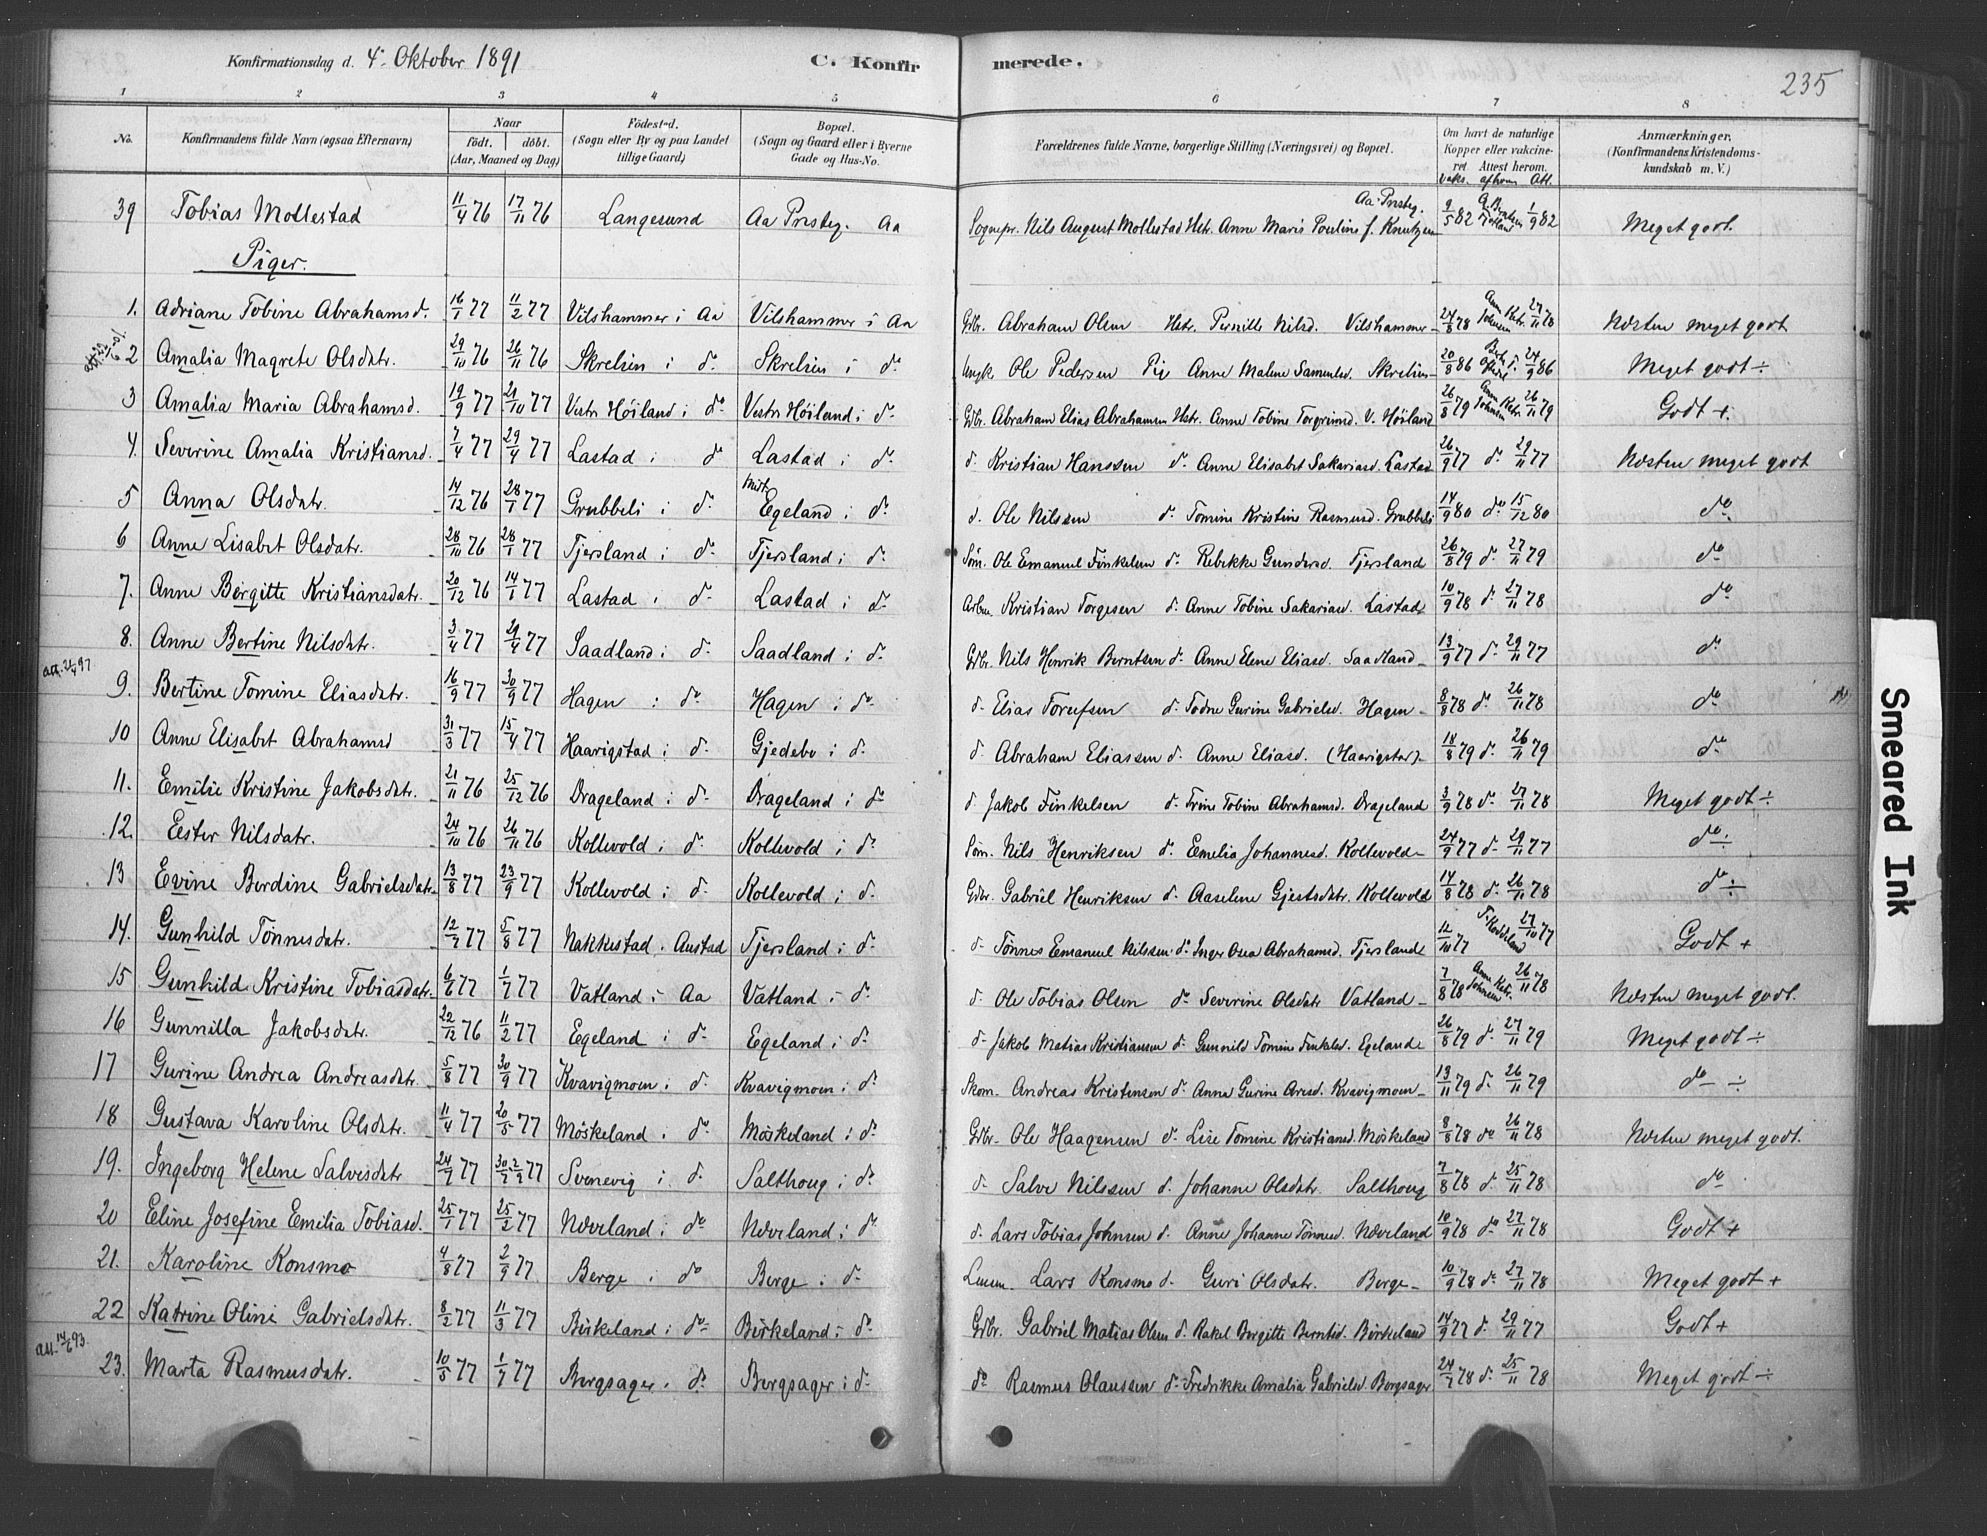 Konfirmationsdag d. 4. Oktober 1891 C. Konfirmerede. 235
1 2 3 4 5 6 7 8
No. Konfirmandens fulde Navn (ogsaa Efternavn) Naar født. døbt. (Aar, Maaned og Dag) Fødested. (Sogn eller By og paa Landet tillige Gaard) Bopæl. (Sogn og Gaard eller i Byerne Gade og Hus-No. Forældrenes fulde Navne, borgerlige Stilling (Næringsvei) og Bopæl. Om havt de naturlige Kopper eller vakcineret Attest herom. vaks. af hvem Att. Anmærkninger, (Konfirmandens Kristendomskundskab m. V.)
39 Tobias Mollestad 11/4 76 17/11 76 Langesund Aa Prsteg. Aa Sognepr. Nils August Mollestad Hstr. Anne Maris Pouline f. Knutzen Aa Prsteg. 9/5 82 1/9 82 Meget godt.
Piger.
1. Adriane Tobine Abrahamsd. 16/1 77 11/2 77 Vilshammer i Aa Vilshammer i Aa Gdbr. Abraham Olsen Hstr. Pernille Nilsd. Vilshammer 24/8 78 Ann Ktr. Johnsen 27/11 78 Næsten meget godt
2 Amalia Magrete Olsdatr. 29/10 76 26/11 76 Skrelsen i do Skrelien i do Ungk Ole Pedersen Pig Anne Malene Samuelsd. Skrelien 20/8 86 24/9 86 Meget godt ÷
3 Amalia Maria Abrahamsd. 19/9 77 21/10 77 Vestr Høiland i do Vestr Høiland i do Gdbr. Abraham Elias Abrahamsen Hstr. Anne Tobine Torgrimsd. V. Høiland 26/8 79 Ann Ktr. Johnsen 26/11 79 Godt +
4. Severine Amalia Kristiansd. 7/4 77 29/4 77 Lastad i do Lastad i do d. Kristian Hanssen d. Anne Elisabet Sakariasd. Lastad 26/9 77 do 29/11 77 Næsten meget godt
5 Anna Olsdatr. 14/12 76 28/1 77 Grubbeli i do Midtr Egeland i do d. Ole Nilssen d. Tomine Kristine Rasmusd. Grubbeli 14/9 80 do 15/12 80 do
6 Anne Lisabet Olsdatr. 28/10 76 28/1 77 Tjersland i do Tjersland i do Søm. Ole Emanuel Finkelsen d. Rebikke Gundersd. Tjersland 26/8 79 d. 27/11 79 do
7. Anne Bergitte Kristiansdatr. 20/12 76 14/1 77 Lastad i do Lastad i do Arbm. Kristian Torgesen d. Anne Tobine Sakariasd. Lastad 10/9 78 d. 27/11 78 do
8. Anne Bertine Nilsdatr. 3/4 77 29/4 77 Saadland i do Saadland i do Gdbr. Nils Henrik Berntsen d. Anne Elene Eliasd. Saadland 13/9 77 d. 29/11 77 do
att. 21/4 97
9. Bertine Tomine Eliasdatr. 16/9 77 30/9 77 Hagen i do Hagen i do d. Elias Torufsen d. Todne Gurine Gabrielsd. Hagen 8/8 78 d. 26/11 78 do
10 Anne Elisabet Abrahamsd 31/3 77 15/4 77 Haarigstad i do Gjedebo i do d. Abraham Eliassen d. Anne Eliasd. (Haarigstad) 18/8 79 d. 26/11 79 do
11. Emilie Kristine Jakobsdatr. 21/11 76 25/12 76 Drageland i do Drageland i do d. Jakob Finkelsen d. Trine Tobine Abrahamsd. Drageland 3/9 78 do 27/11 78 Meget godt ÷
12. Ester Nilsdatr. 24/10 76 26/11 76 Kollevold i do Kollevold i do Søm. Nils Henriksen d. Emelia Johannesd. Kollevold 24/9 77 d. 29/11 77 do ÷
13 Evine Berdine Gabrielsdatr. 13/8 77 23/9 77 Kollevold i do Kollevold i do Gdbr. Gabriel Henriksen d. Aaselene Gjestsdatr. Kollevold 14/8 78 d. 26/11 78 do ÷
14. Gunhild Tønnesdatr. 12/7 77 5/8 77 Nakkestad i Austad Tjersland i do d. Tønnes Emanuel Nilssen do Inger Osea Abrahamsd. Tjersland 12/10 77 27/10 77 Godt +
15 Gunhild Kristine Tobiasdatr. 6/6 77 1/7 77 Vatland i Aa Vatland i do d. Ole Tobias Olsen do Severine Olsdatr Vatland 7/8 78 Ann Ktr. Johnsen 26/11 78 Næsten meget godt.
16 Gunnilla Jakobsdatr. 22/12 76 11/2 77 Egeland i do Egeland i do d. Jakob Matias Kristiansen d. Gunnild Tomine Finkelsd. Egeland 26/8 79 d. 27/11 79 Meget godt ÷
17 Gurine Andrea Andreasdatr. 5/8 77 30/9 77 Kvavigmoen i do Kvavigmoen i do Skom. Andreas Kristensen d. Anna Gurine Aresd. Kvavigmoen 13/11 79 d. 26/11 79 do ÷
18 Gustava Karoline Olsdatr. 11/4 77 20/5 77 Møskeland i do Møskeland i do Gdbr. Ole Haagensen d. Lise Tomine Kristiansd. Møskeland 8/8 78 do 26/11 78 Næsten meget godt.
19. Ingeborg Helene Salvesdatr 24/7 77 30/7 2/9 77 Svenevig i do Salthoug i do d. Salve Nilssen d. Johanne Olsdatr. Salthoug 7/8 78 d. 25/11 78 do
20 Eline Josefine Emilia Tobiasd. 25/1 77 25/2 77 Næveland i do Næveland i do d. Lars Tobias Johnsen d. Anne Johanne Tønnesd. Næveland 10/9 78 do 27/11 78 Godt +
21. Karoline Konsmo 4/8 77 2/9 77 Berge i do Berge i do Lensm. Lars Konsmo d. Guri Olsdatr. Berge 10/9 78 do 27/11 78 Meget godt +
22 Katrine Oline Gabrielsdatr. 8/2 77 11/3 77 Birkeland i do Birkeland i do Gdbr. Gabriel Matias Olsen d. Rakel Bergitte Berntsd. Birkeland 14/9 77 d. 29/11 77 Godt +
att. 14/6 93.
23. Marta Rasmusdatr. 10/5 77 1/7 77 Bergsager i do Bergsager i do do Rasmus Olaussen d. Fredrikke Amalia Gabrielsd Bergsager 24/7 78 d. 25/11 78 Meget godt ÷
Smeared Ink